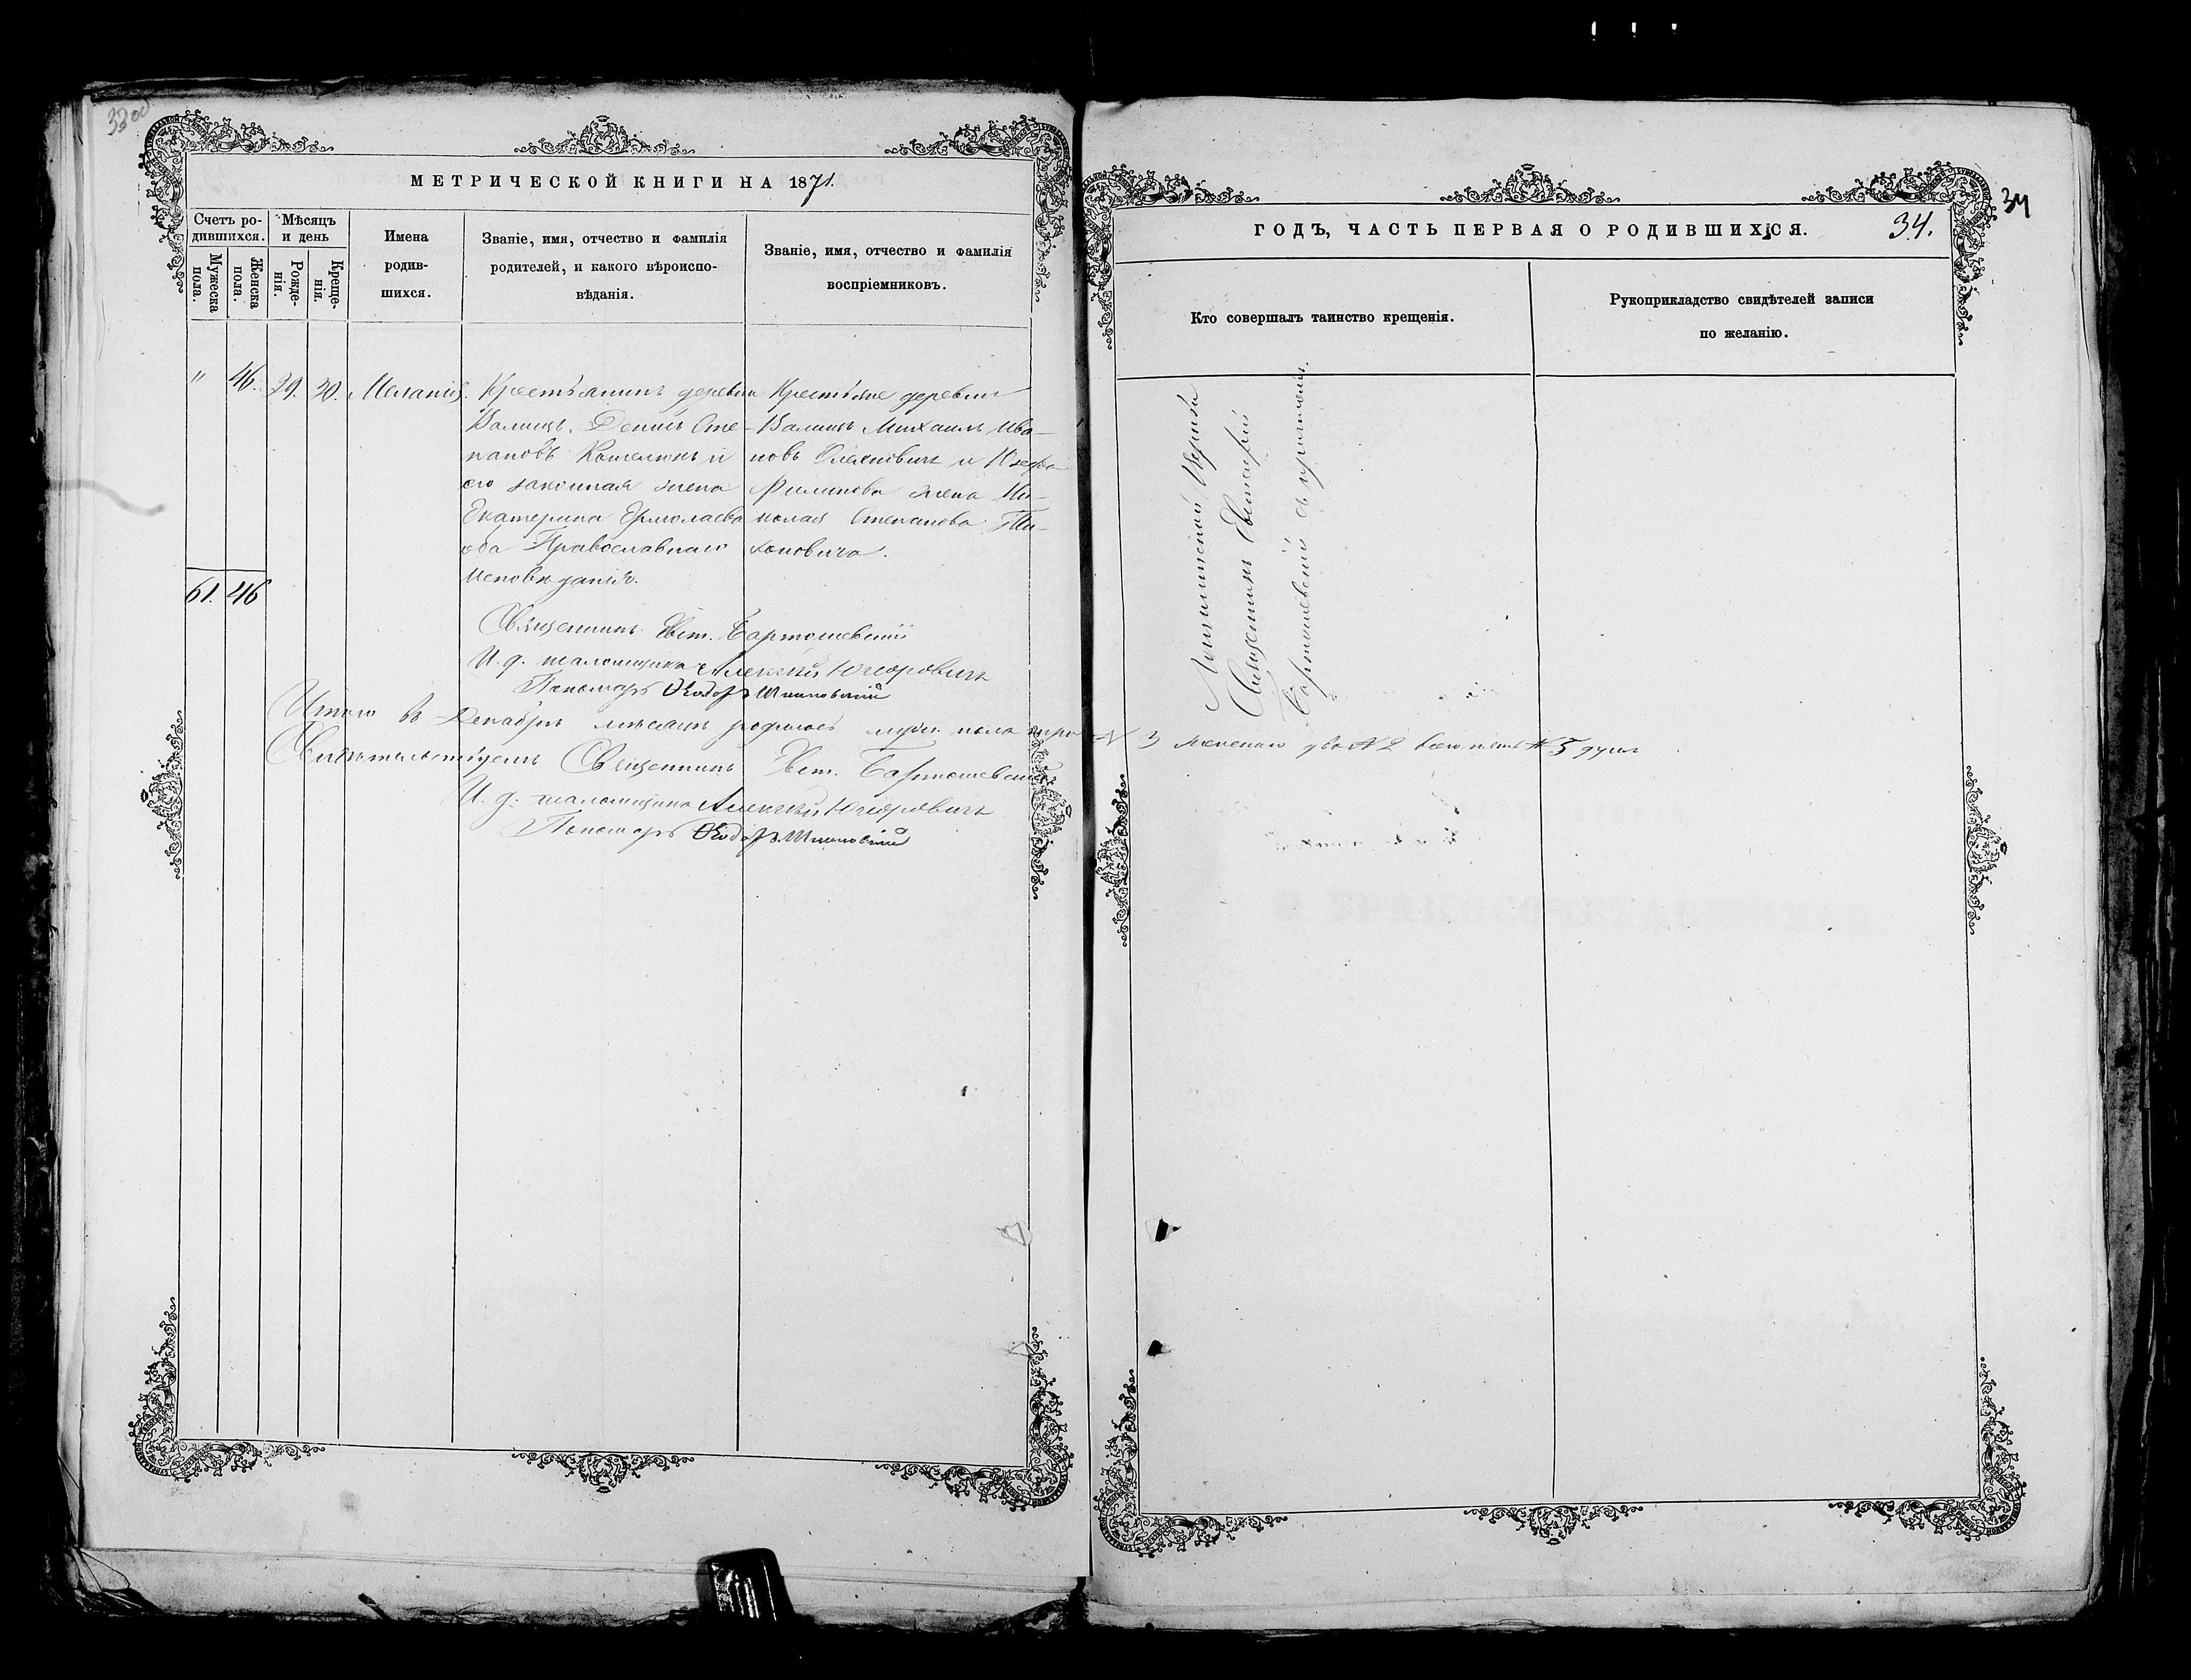 33об
МЕТРИЧЕСКОЙ КНИГИ НА 1871.
Счетъ ро-
дившихся.
Мѣсяцъ
и день
Мужеска
пола.
Женска
пола.
Рожде-
нія.
Креще-
нія.
Имена
родив-
шихся.
Званіе, имя, отчество и фамилія
родителей, и какого вѣроиспо-
вѣданія.
Званіе, имя, отчество и фамилія
воспріемниковъ.
" 46. 29. 30. Меланія.
Крестьянинъ деревни
Валищъ, Денисъ Сте-
пановъ и
его законная жена
Екатерина Ермолаева
Православнаго
Исповѣданія.
Крестьяне деревни
Валищъ Михаилъ Ива-
новъ и
Филипова жена Ни-
колая Степанова Ти-
хоновича.
61. 46
Священникъ Евст. Бартошевскій
И. д. псаломщика Алексѣй
Пономарь Ѳеодоръ
Итого въ Декабрѣ мѣсяцѣ родилось муж. пола три № 3 женскаго два № 2 всего пять № 5 душъ
Свидѣтельствуемъ Священникъ Евст. Бартошевскій
И. д. псаломщика Алексѣй
Пономарь Ѳеодоръ
34
ГОДЪ, ЧАСТЬ ПЕРВАЯ О РОДИВШИХСЯ.
34.
Кто совершалъ таинство крещенія.
Рукоприкладство свидѣтелей записи
по желанію.
Церкви
Священникъ Евстафій
Бартошевскій съ причтомъ.